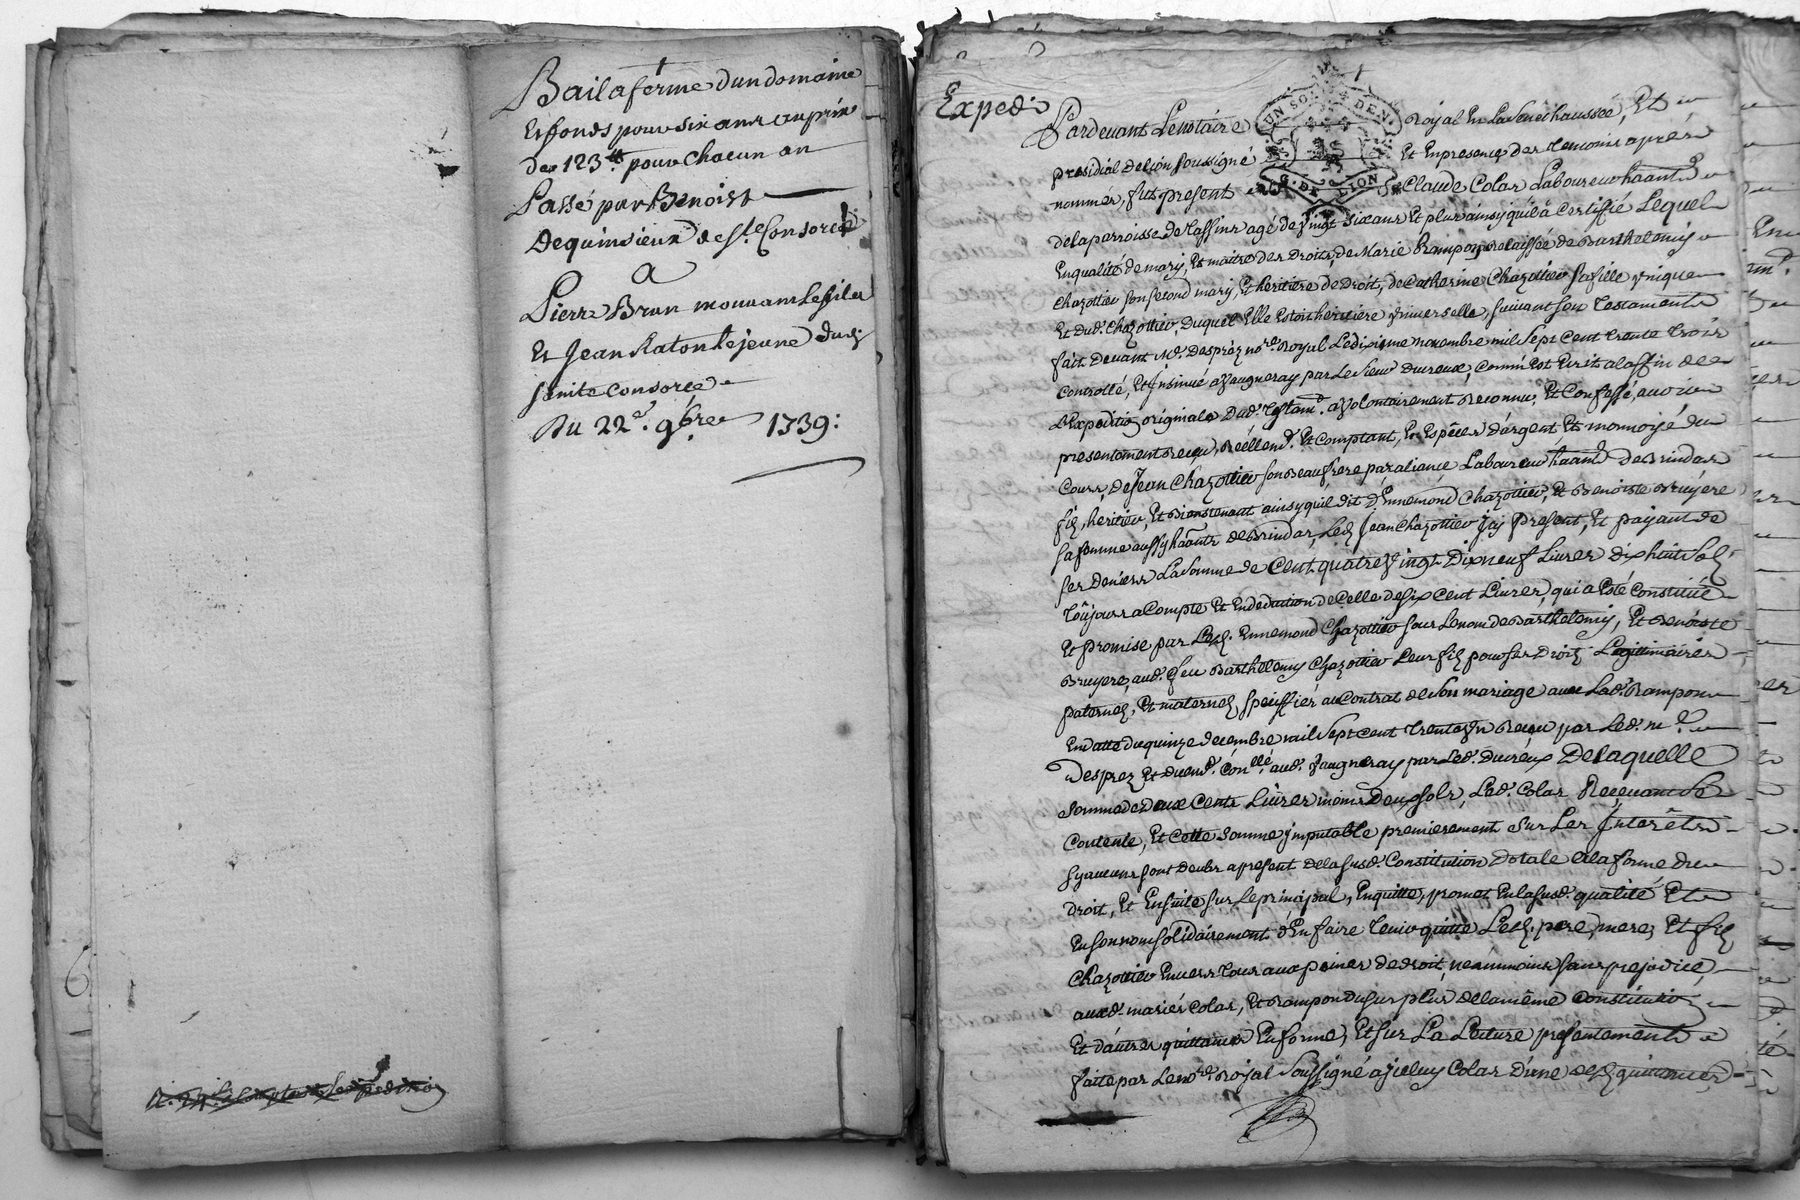 Bail a ferme d'un domaine
Et fonds pour six ans au prix
de 123ᵗᵗ pour chacun an
Passé par Benoist
Dequinsieux de Ste Consorce
a
Pierre Brun mouvant le fils
Et Jean Raton le jeune dud.
sainte consorce
Du 22e. 9bre 1739:
Exped.
Pardevant Le notaire Royal En La Senechaussée, Et
presidial de Lion soussigné Et En presence des temoins après
nommés, fut present Claude Colas Laboureur haant.
de la parroisse de Tassins agé de vingt six ans Et plus ainsy quil a Certiffié Lequel
En qualité de mary, Et maitre des Droits, de Marie Rampon, Relaissée de Barthelemy
Chazottier son second mary, Et heritiere de Droit, de Catherine Chazottier sa fille unique
Et dud. Chazottier Duquel Elle Estoit heritiere universelle, suivant son Testament
fait Devant Me. Desprez nore. Royal Le dixieme novembre mil Sept Cent trente trois
Controllé, Et Insinué a Vaugneray par Le Sieur Dureux, Comm' Est Ecrit a la fin de
L'Expeditio originale Dud. Testamt. a volontairement Reconnu, Et Confessé, avoir
presentement Reçu, Réellemt. Et Comptant, En Espèces d'argent Et monnoyé du
Cours, De Jean Chazottier son Beaufrere par aliance Laboureur haant de Brindas
fils, heritier, Et Bienstenant ainsy quil dit d'Ennemond Chazottier, Et Benoiste Bruyere
sa femme aussy haants de Brindas, Led. Jean Chazottier Icy present, Et payant de
ses Deniers La somme de Cent quatre vingt Dix neuf Livres dix huit Sols
Toûjours a Compte Et En deduction de Celle de six cent Livres, qui a Esté Constitué
Et promise par Led. Ennemond Chazottier sous Le nom de Barthelemy, Et Benoiste
Bruyere, aud. feu Barthelemy Chazottier Leur fils pour ses Droits Legitimaires
paternels, Et maternels specifiés au Contrat de Son mariage avec Lad. Rampon
En datte du quinze decembre mil Sept cent trente un Reçu par Led. me.
Desprez Et duemt. Conllé. aud. Vaugneray par Led. Dureux De laquelle
Somme de Deux Cents Livres moins Deux sols, Led. Colas Recevant Se
Contente, Et Cette Somme imputable premierement Sur Les Interêts
sy aucuns sont deubs a present de la susd. Constitution Dotale a la forme du
droit, Et Ensuite sur Le principal, En quitte, promet En la susd. qualité Et
En son nom solidairement d'En faire tenir quitte Lesd. pere, mere, Et fils
Chazottier Envers tous aux peines de droit, neammoins sans prejudice,
auxd. mariés Colas, Et Rampon du surplus de la même Constitutio
Et d'autres quittances En forme, Et sur La Lecture presentement
faite par Le nore. Royal Soussigné a Iceluy Colas D'une desd. quittances